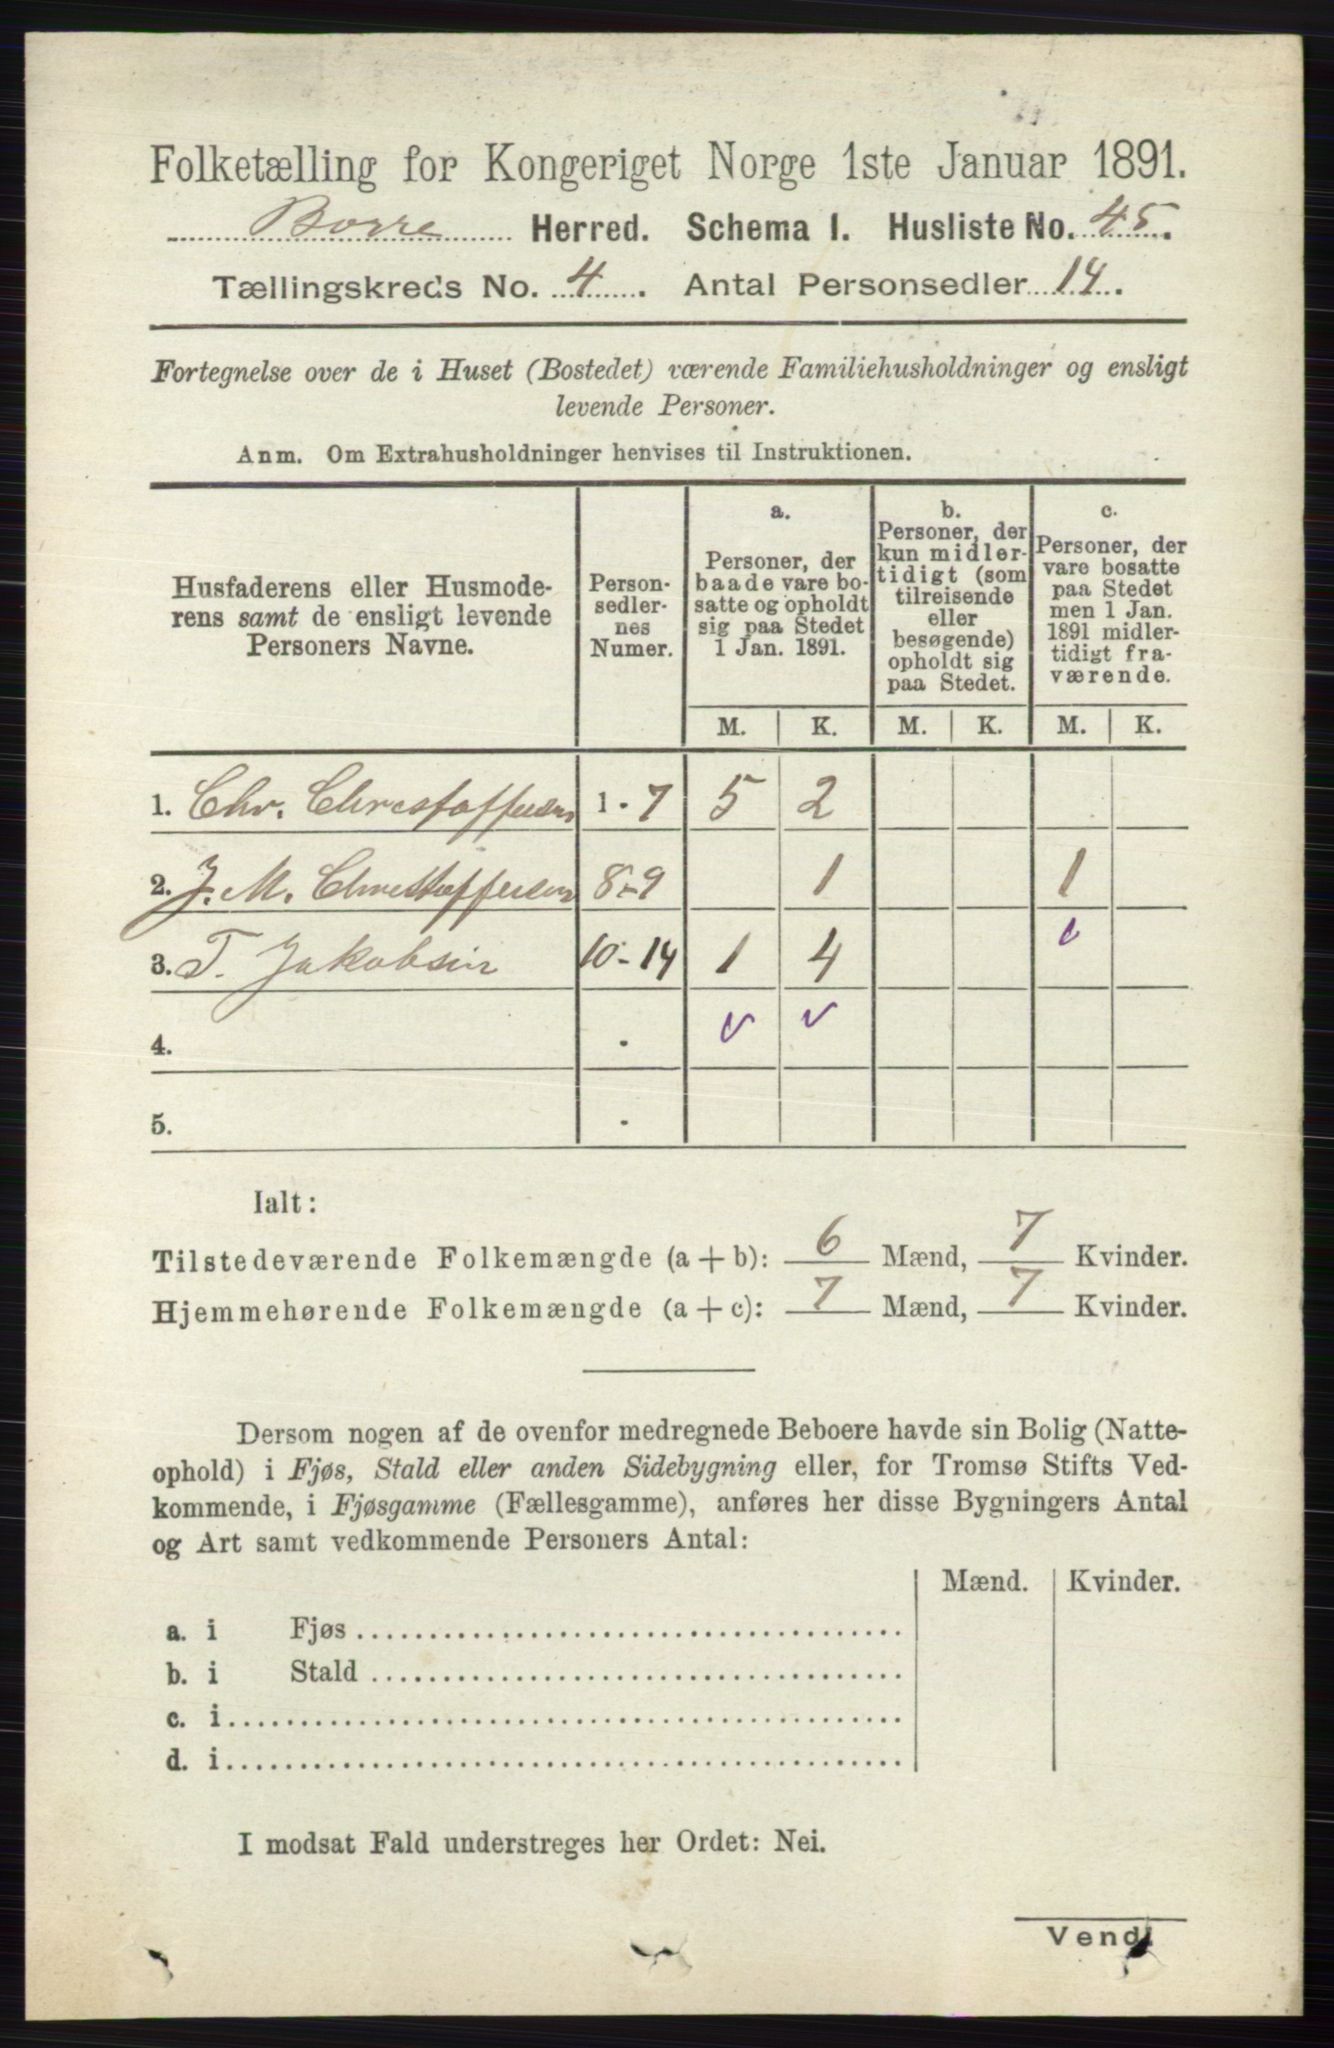 Folketælling for Kongeriget Norge 1ste Januar 1891.
Borre Herred. Schema 1. Husliste No. 45.
Tællingskreds No. 4. Antal Personsedler 14.
Fortegnelse over de i Huset (Bostedet) værende Familiehusholdninger og ensligt
levende Personer.
Anm. Om Extrahusholdninger henvises til Instruktionen.
Husfaderens eller Husmode-
rens samt de ensligt levende
Personers Navne.
Person-
sedler-
nes
Numer.
a.
Personer, der
baade vare bo-
satte og opholdt
sig paa Stedet
1 Jan. 1891.
b.
Personer, der
kun midler-
tidigt (som
tilreisende
eller
besøgende)
opholdt sig
paa Stedet.
c.
Personer, der
vare bosatte
paa Stedet
men 1 Jan.
1891 midler-
tidigt fra-
værende.
M. K. M. K. M. K.
1. Chr. Christoffersen 1 - 7 5 2
2. J. M. Christoffersen 8-9 1 1
3. T. Jakobsen 10-14 1 4
4. .
5. .
Ialt:
Tilstedeværende Folkemængde (a + b): 6 Mænd, 7 Kvinder.
Hjemmehørende Folkemængde (a + c): 7 Mænd, 7 Kvinder.
Dersom nogen af de ovenfor medregnede Beboere havde sin Bolig (Natte-
ophold) i Fjøs, Stald eller anden Sidebygning eller, for Tromsø Stifts Ved-
kommende, i Fjøsgamme (Fællesgamme), anføres her disse Bygningers Antal
og Art samt vedkommende Personers Antal:
Mænd. Kvinder.
a. i Fjøs
b. i Stald
c. i
d. i
I modsat Fald understreges her Ordet: Nei.
Vend!